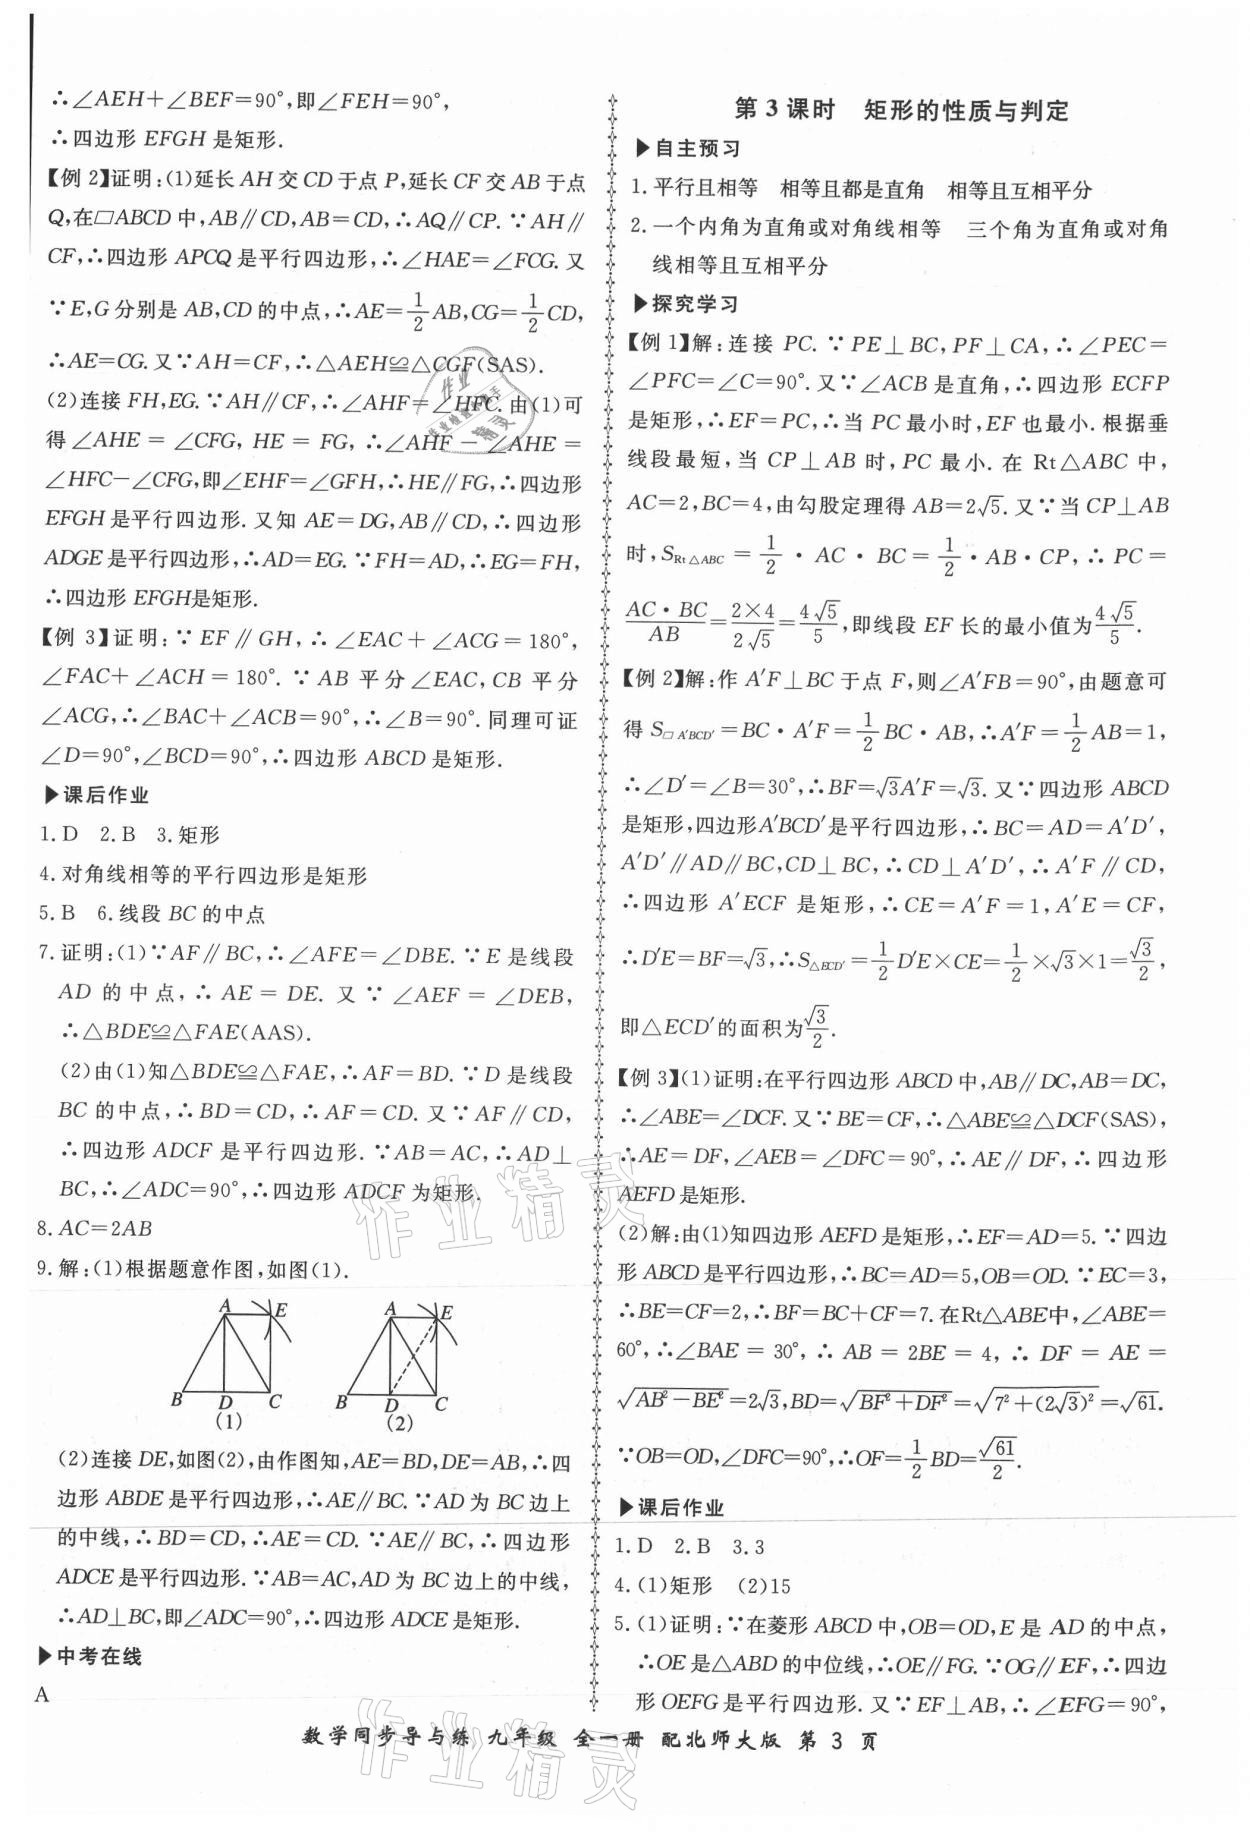 ∴∠AEH+∠BEF=90°,即∠FEH=90°,
∴四边形 EFGH 是矩形.
【例 2】证明:(1)延长 AH 交 CD 于点 P,延长 CF 交 AB 于点
Q,在□ABCD 中,AB∥CD,AB=CD,∴AQ∥CP.∵AH∥
CF,∴四边形 APCQ 是平行四边形,∴∠HAE=∠FCG. 又
∵E,G 分别是 AB,CD 的中点,∴AE=1/2AB,CG=1/2CD,
∴AE=CG. 又∵AH=CF,∴△AEH≌△CGF(SAS).
(2)连接 FH,EG.∵AH∥CF,∴∠AHF=∠HFC. 由(1)可
得∠AHE=∠CFG, HE=FG, ∴∠AHF-∠AHE=
∠HFC-∠CFG,即∠EHF=∠GFH,∴HE∥FG,∴四边形
EFGH 是平行四边形. 又知 AE=DG,AB∥CD,∴四边形
ADGE 是平行四边形,∴AD=EG.∵FH=AD,∴EG=FH,
∴四边形 EFGH是矩形.
【例 3】证明:∵EF∥GH,∴∠EAC+∠ACG=180°,
∠FAC+∠ACH=180°.∵AB 平分∠EAC,CB 平分
∠ACG,∴∠BAC+∠ACB=90°,∴∠B=90°. 同理可证
∠D=90°,∠BCD=90°,∴四边形 ABCD 是矩形.
▶课后作业
1. D 2. B 3. 矩形
4. 对角线相等的平行四边形是矩形
5. B 6. 线段 BC 的中点
7. 证明:(1)∵AF∥BC,∴∠AFE=∠DBE.∵E 是线段
AD 的中点,∴AE=DE. 又∵∠AEF=∠DEB,
∴△BDE≌△FAE(AAS).
(2)由(1)知△BDE≌△FAE,∴AF=BD.∵D 是线段
BC 的中点,∴BD=CD,∴AF=CD. 又∵AF∥CD,
∴四边形 ADCF 是平行四边形.∵AB=AC,∴AD⊥
BC,∴∠ADC=90°,∴四边形 ADCF 为矩形.
8. AC=2AB
9. 解:(1)根据题意作图,如图(1).
A E A E
B D C B D C
(1) (2)
(2)连接 DE,如图(2),由作图知,AE=BD,DE=AB,∴四
边形 ABDE 是平行四边形,∴AE∥BC.∵AD 为 BC 边上
的中线,∴BD=CD,∴AE=CD.∵AE∥BC,∴四边形
ADCE 是平行四边形.∵AB=AC,AD 为 BC 边上的中线,
∴AD⊥BC,即∠ADC=90°,∴四边形 ADCE 是矩形.
▶中考在线
A
第 3 课时 矩形的性质与判定
▶自主预习
1. 平行且相等 相等且都是直角 相等且互相平分
2. 一个内角为直角或对角线相等 三个角为直角或对角
线相等且互相平分
▶探究学习
【例 1】解:连接 PC.∵PE⊥BC,PF⊥CA,∴∠PEC=
∠PFC=∠C=90°. 又∵∠ACB 是直角,∴四边形 ECFP
是矩形,∴EF=PC,∴当 PC 最小时,EF 也最小. 根据垂
线段最短,当 CP⊥AB 时,PC 最小. 在 Rt△ABC 中,
AC=2,BC=4,由勾股定理得 AB=2√5. 又∵当 CP⊥AB
时,S_{Rt△ABC}=1/2·AC·BC=1/2·AB·CP,∴PC=
AC·BC/AB=2×4/2√5=4√5/5,即线段 EF 长的最小值为4√5/5.
【例 2】解:作 A′F⊥BC 于点 F,则∠A′FB=90°,由题意可
得 S_{□A′BCD′}=BC·A′F=1/2BC·AB,∴A′F=1/2AB=1,
∴∠D′=∠B=30°,∴BF=√3A′F=√3. 又∵四边形 ABCD
是矩形,四边形A′BCD′是平行四边形,∴BC=AD=A′D′,
A′D′∥AD∥BC,CD⊥BC,∴CD⊥A′D′,∴A′F∥CD,
∴四边形 A′ECF 是矩形,∴CE=A′F=1,A′E=CF,
∴D′E=BF=√3,∴S_{△ECD′}=1/2D′E×CE=1/2×√3×1=√3/2,
即△ECD′的面积为√3/2.
【例 3】(1)证明:在平行四边形 ABCD 中,AB∥DC,AB=DC,
∴∠ABE=∠DCF. 又∵BE=CF,∴△ABE≌△DCF(SAS),
∴AE=DF,∠AEB=∠DFC=90°,∴AE∥DF,∴四边形
AEFD 是矩形.
(2)解:由(1)知四边形 AEFD 是矩形,∴EF=AD=5.∵四边
形 ABCD 是平行四边形,∴BC=AD=5,OB=OD.∵EC=3,
∴BE=CF=2,∴BF=BC+CF=7. 在Rt△ABE中,∠ABE=
60°,∴∠BAE=30°,∴AB=2BE=4,∴DF=AE=
√(AB²-BE²)=2√3,BD=√(BF²+DF²)=√(7²+(2√3)²)=√61.
∵OB=OD,∠DFC=90°,∴OF=1/2BD=√61/2.
▶课后作业
1. D 2. B 3. 3
4. (1)矩形 (2)15
5. (1)证明:∵在菱形 ABCD 中,OB=OD,E 是 AD 的中点,
∴OE 是△ABD 的中位线,∴OE∥FG.∵OG∥EF,∴四边
形 OEFG 是平行四边形. 又∵EF⊥AB,∴∠EFG=90°,
数学同步导与练 九年级 全一册 配北师大版 第 3 页
作业精灵
作业精灵